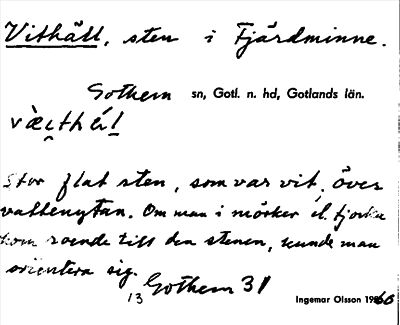 Vithäll, sten i Fjärdminne.
Gothem sn, Gotl. n. hd, Gotlands län.
Stor flat sten, som var vit, över
vattenytan. Om man i mörker el. tjocka
kom roende till den stenen, kunde man
orientera sig.
13 Gothem 31
Ingemar Olsson 1960